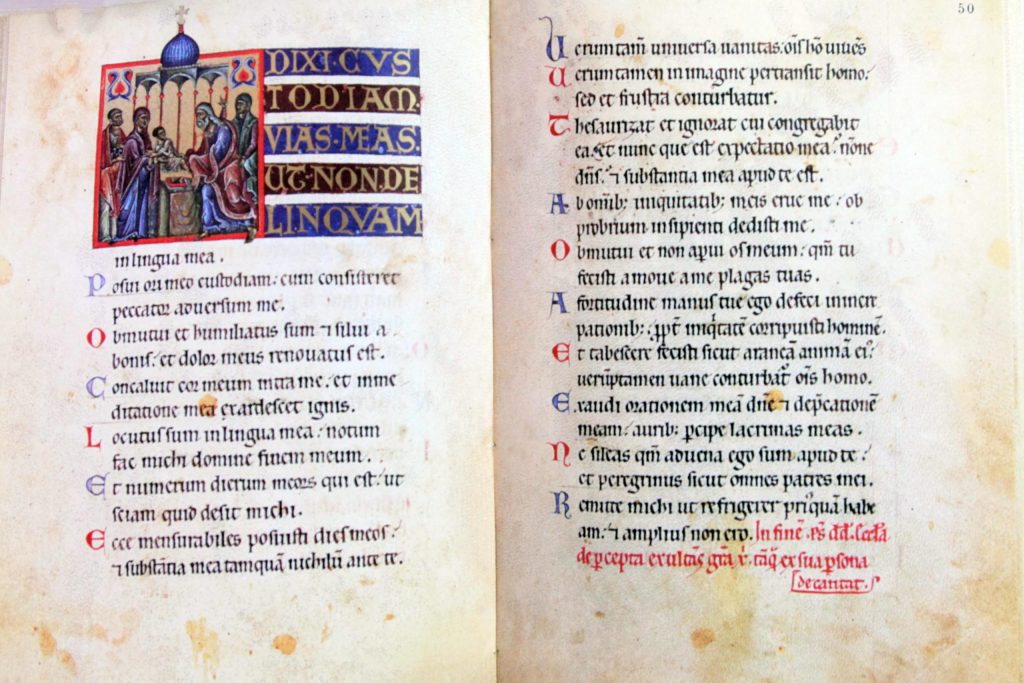 DIXI·CVS
TODIAM·
VIAS·MEAS·
UT·NON·DE
LINQVAM
in lingua mea.
Posui ori meo custodiam: cum consisteret
peccator adversum me.
Obmutui et humiliatus sum ⁊ silui a
bonis: et dolor meus renovatus est.
Concaluit cor meum intra me: et in me
ditatione mea exardescet ignis.
Locutus sum in lingua mea: notum
fac michi domine finem meum.
Et numerum dierum meorum qui est: ut
sciam quid desit michi.
Ecce mensurabiles posuisti dies meos:
⁊ substãtia mea tamquã nichilũ ante te.
50
Ueruntam̃ universa vanitas: oĩs hõ vivẽs
Ueruntamen in imagine pertransit homo:
sed et frustra conturbatur.
Thesaurizat et ignorat cui congregabit
ea. Et nunc que est expectatio mea: nõne
dñs: ⁊ substantia mea apud te est.
Ab omĩb; iniquitatib; meis erue me: ob
probrium insipienti dedisti me.
Obmutui et non apui os meum: qm̃ tu
fecisti amove a me plagas tuas.
A fortitudine manus tue ego defeci in incre
pationib; ppt̃ iniq̃tatẽ corripuisti hominẽ.
Et tabescere fecisti sicut araneã animã eiꝰ:
verũptamen vane conturbat̃ oĩs homo.
Exaudi orationem meã dñe ⁊ dep̃cationẽ
meam: aurib; percipe lacrimas meas.
Ne sileas qm̃ advena ego sum apud te:
et peregrinus sicut omnes patres mei.
Remitte michi ut refrigerer priꝰquã habe
am: ⁊ amplius non ero. In finẽ ps̃ dd̃ eccl̃a
de percepta exultãs gr̃a tãq̃ ex sua persona
decantat.